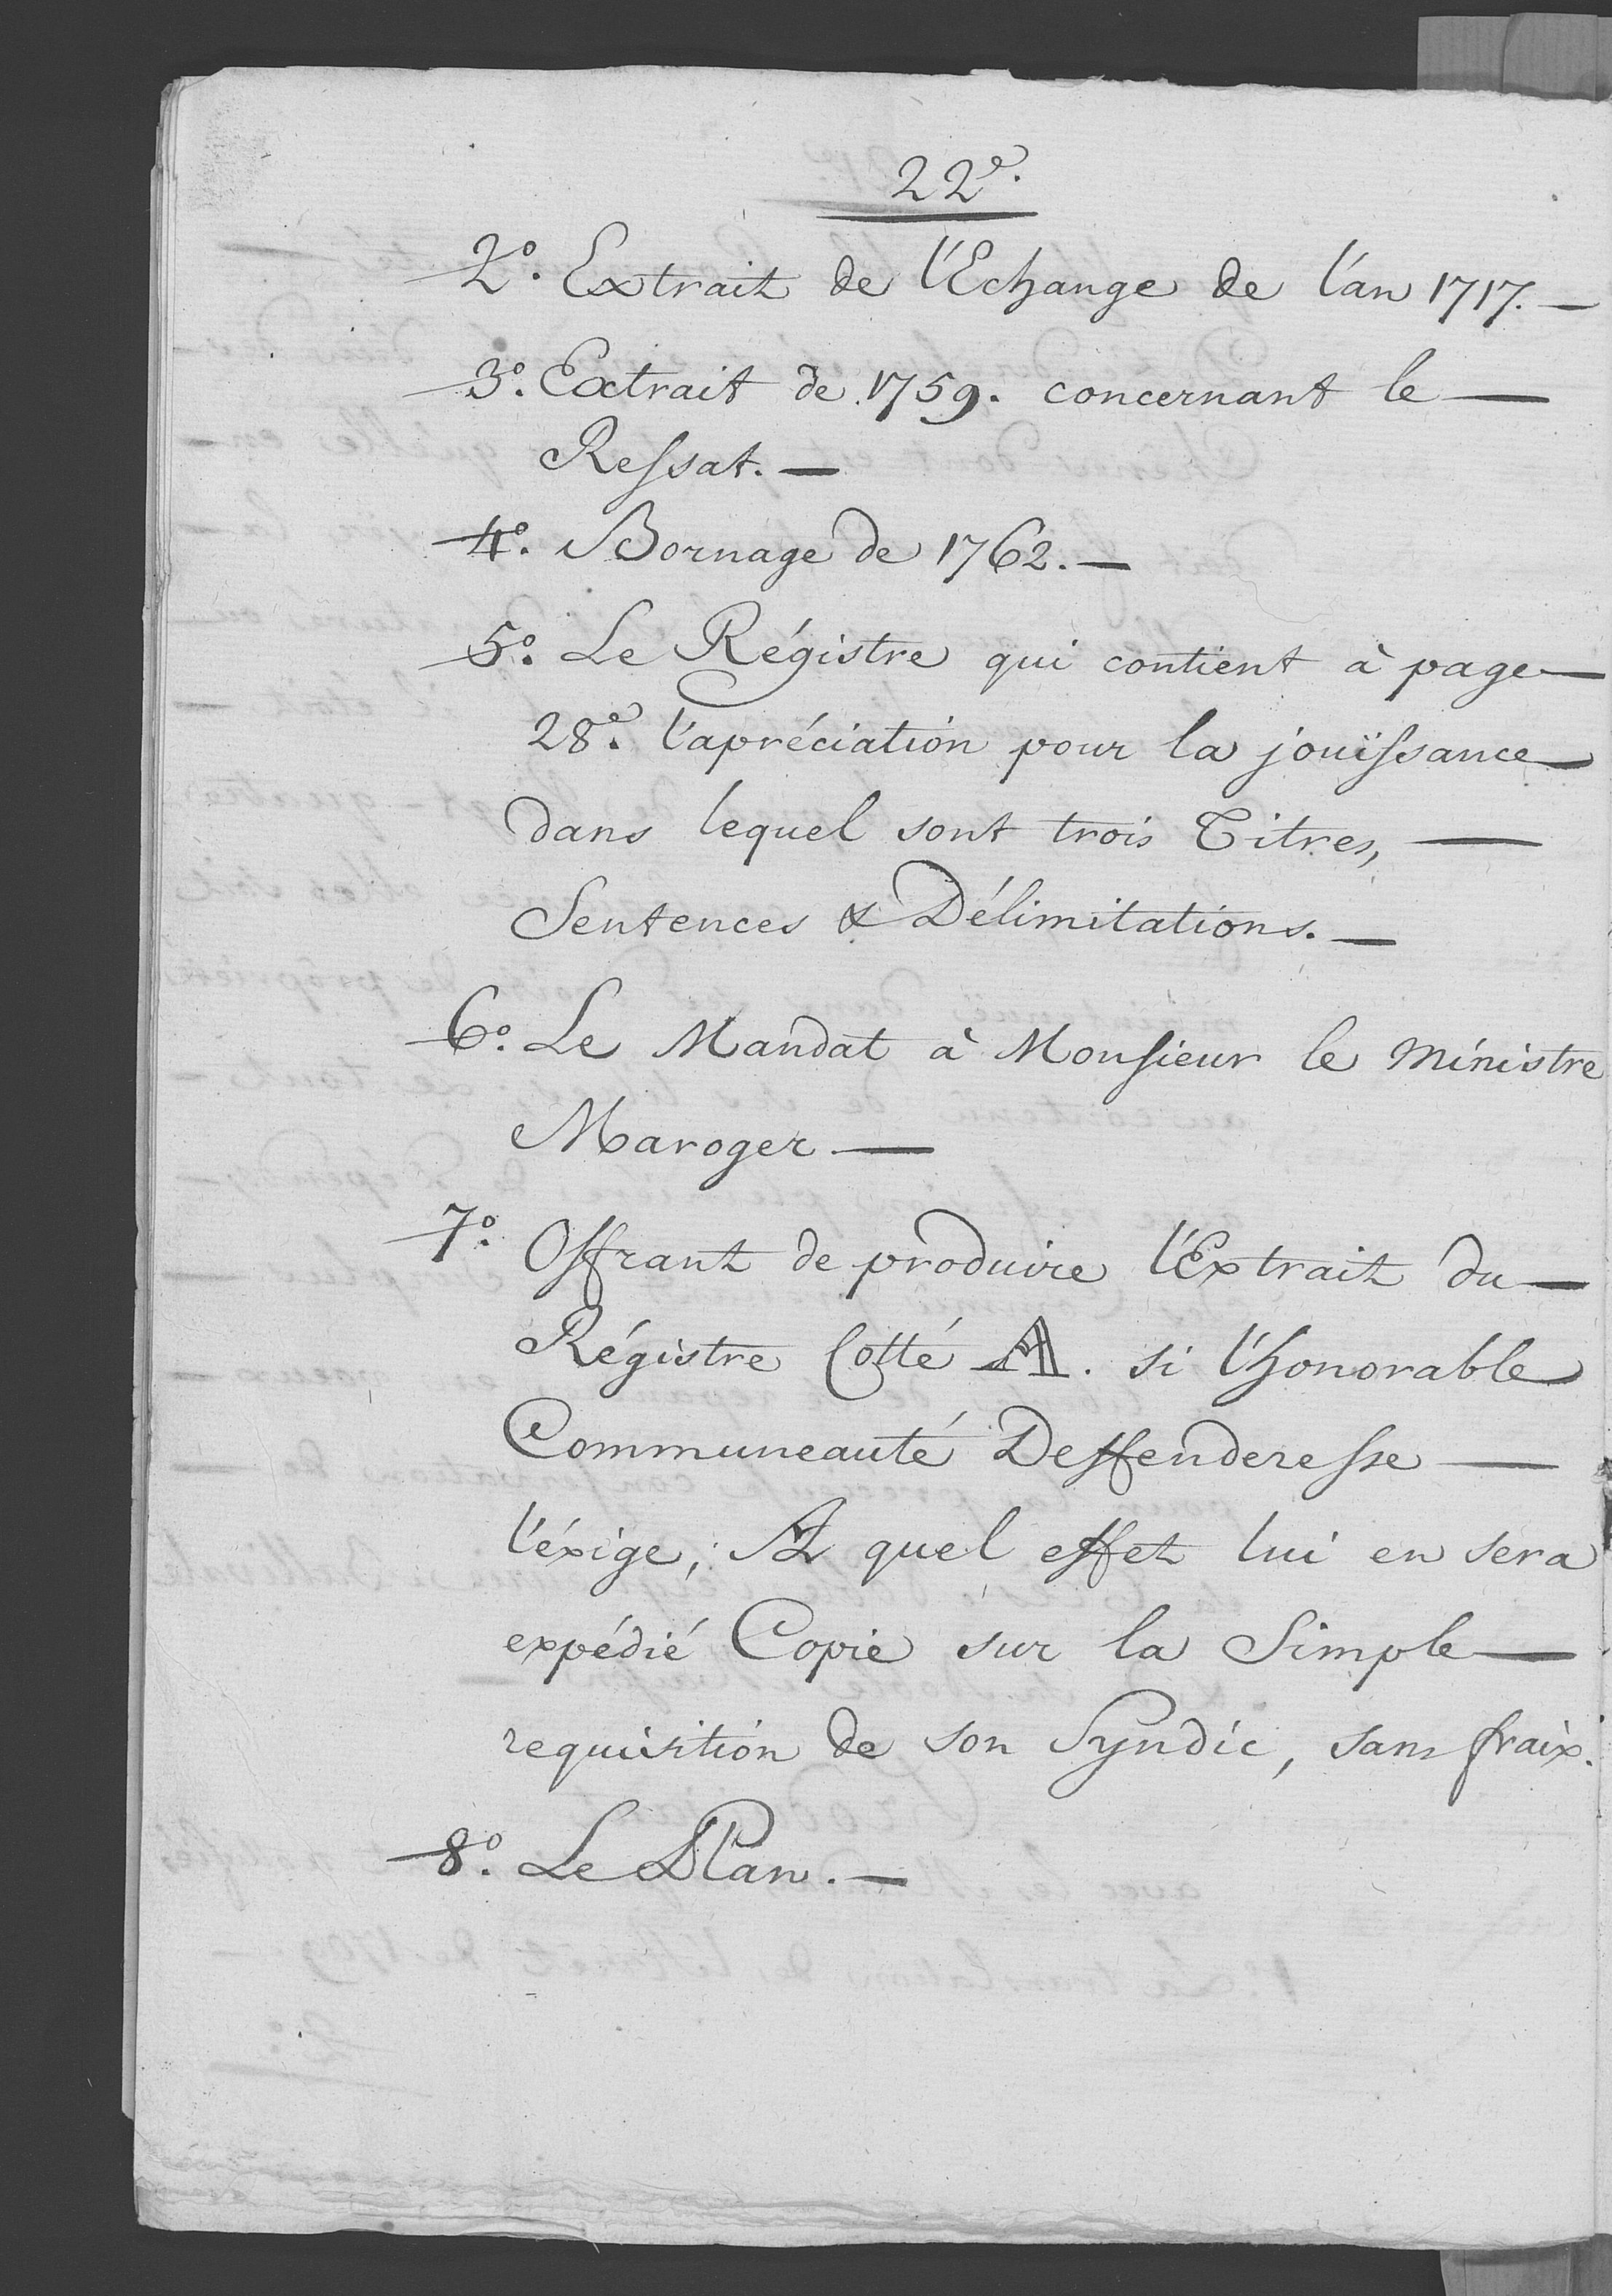 22e.
2o. Extrait de l'Echange de l'an 1717. —
3o. Extrait de 1759. concernant le —
Ressat. —
4o. Bornage de 1762. —
5o. Le Régistre qui contient à page —
28e. l'apréciation pour la jouïssance —
dans lequel sont trois Titres, —
Sentences & Délimitations. —
6o. Le Mandat à Monsieur le Ministre
Maroger —
7o. Offrant de produire l'Extrait du —
Régistre Cotté A. si l'honorable
Communeauté Deffenderesse —
l'éxige; Al quel effet lui en sera
expédié Copie sur la Simple —
requisition de son Syndic, sans fraix.
8o. Le Plan. —